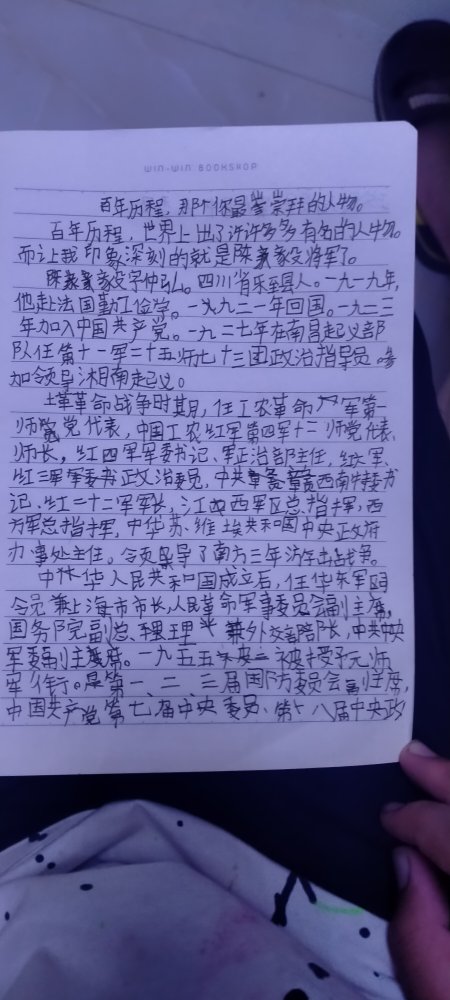 WIN-WIN BOOKSHOP
百年历程，那个你最崇拜的人物。
百年历程，世界上出了许许多多有名的人物。
而让我印象深刻的就是陈毅将军了。
陈毅字仲弘。四川省乐至县人。一九一九年，
他赴法国勤工俭学。一九二一年回国。一九二三
年加入中国共产党。一九二七年在南昌起义部
队任第十一军二十五师七十三团政治指导员。参
加领导湘南起义。
土革革命战争时其月，任工农革命军第一
师党代表，中国工农红军第四军十二师党代表、
师长，红四军军委书记、军正治部主任，红六军、
红三军军委书政治委员，中共西南特委书
记、红二十二军军长，江西军区总指挥，西
方军总指挥，中华苏维埃共和国中央政府
办事处主任。领导了南方三年游击战争。
中华人民共和国成立后，任华东军区司
令员兼上海市市长，人民革命军事委员会副主席，
国务院副总理兼外交部长，中共中央
军委副主席。一九五五年被授予元帅
军衔。是第一、二、三届国防委员会副主席，
中国共产党第七届中央委员、第八届中央政